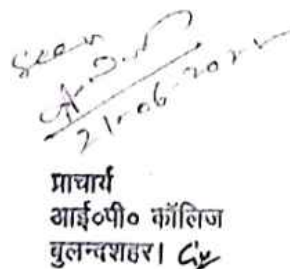 Seen
21-06-202
प्राचार्य
आई०पी० कॉलिज
बुलन्दशहर।